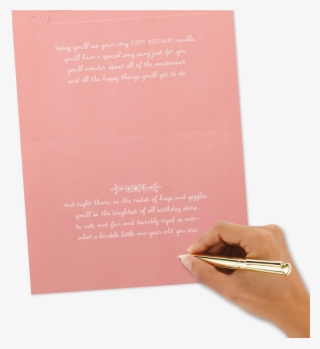 Today you'll see your very FIRST BIRTHDAY candle,
you'll have a special song sung just for you,
you'll wonder about all of the excitement
and all the happy things you'll get to do.
And right there, in the midst of hugs and giggles,
you'll be the brightest of all birthday stars.
So cute and fun and twinkly-eyed as ever—
what a lovable little one-year-old you are!